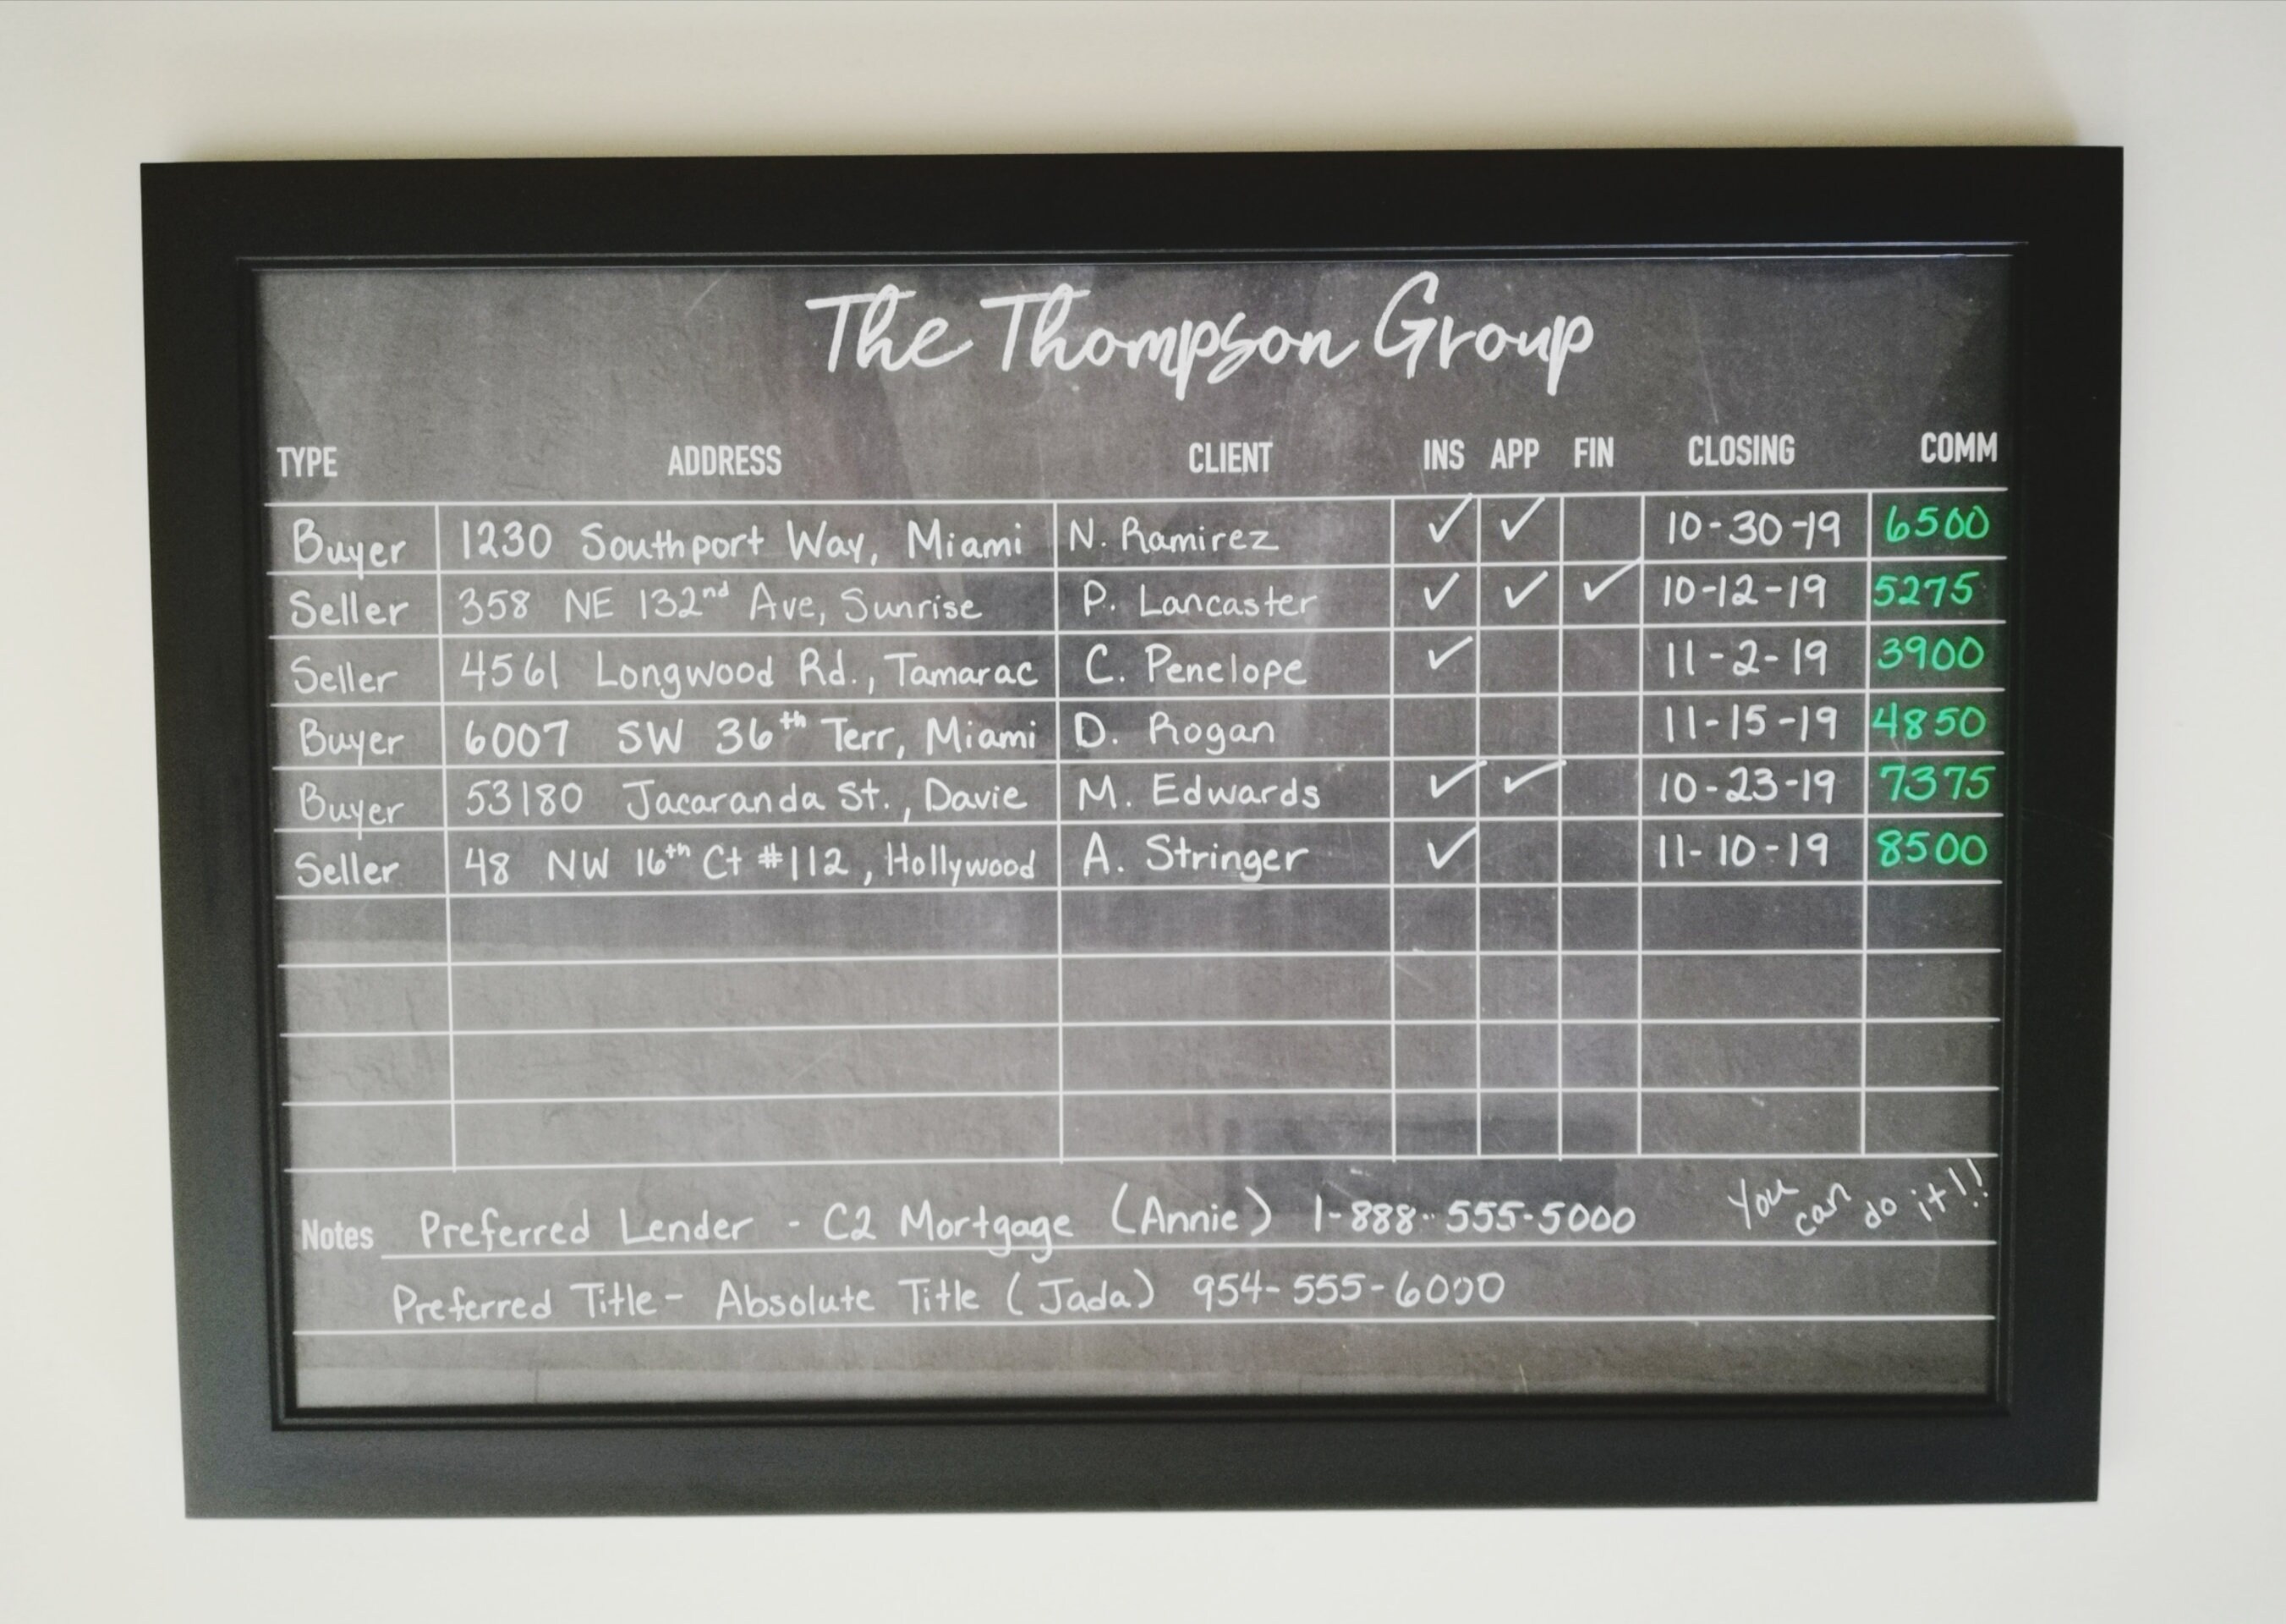 The Thompson Group
TYPE ADDRESS CLIENT INS APP FIN CLOSING COMM
Buyer 1230 Southport Way, Miami N. Ramirez ✓ ✓ 10-30-19 6500
Seller 358 NE 132nd Ave, Sunrise P. Lancaster ✓ ✓ ✓ 10-12-19 5275
Seller 4561 Longwood Rd., Tamarac C. Penelope ✓ 11-2-19 3900
Buyer 6007 SW 36th Terr, Miami D. Rogan 11-15-19 4850
Buyer 53180 Jacaranda St., Davie M. Edwards ✓ ✓ 10-23-19 7375
Seller 48 NW 16th Ct #112, Hollywood A. Stringer ✓ 11-10-19 8500
Notes Preferred Lender - C2 Mortgage (Annie) 1-888-555-5000 You can do it!!
Preferred Title - Absolute Title (Jada) 954-555-6000